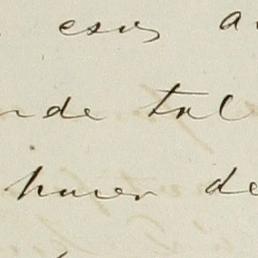 esos a
nde tal
hacer de